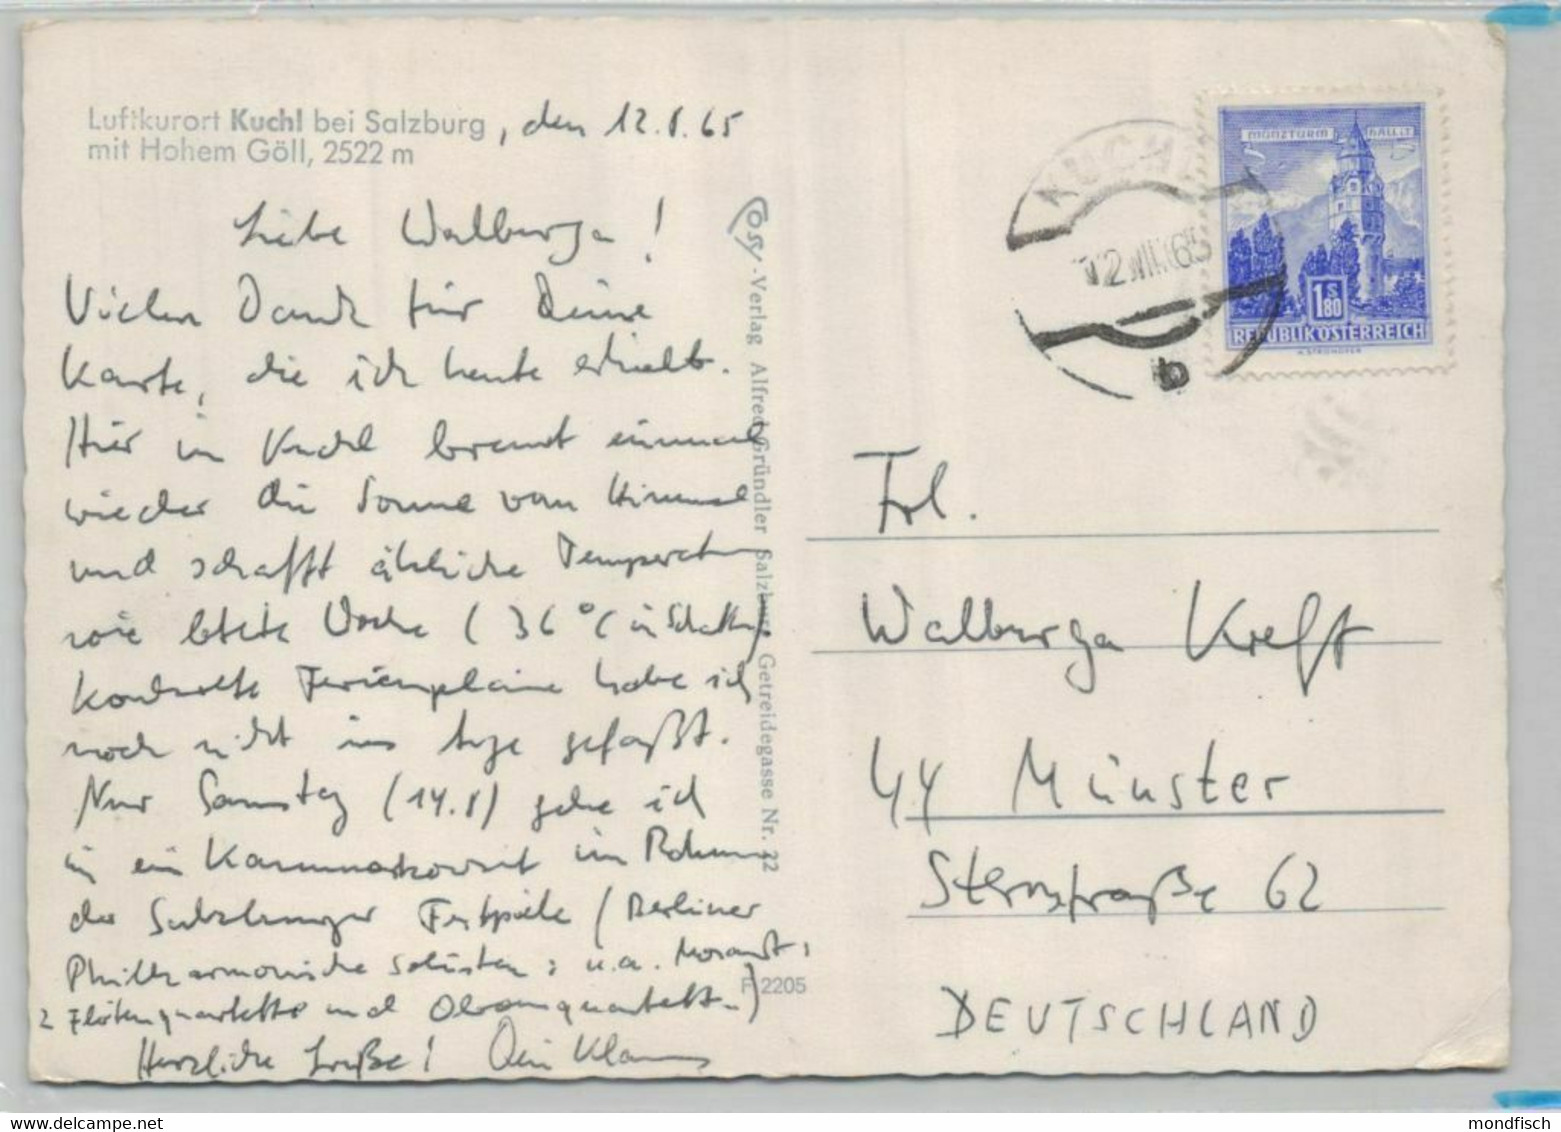 Luftkurort Kuchl bei Salzburg, den 12.8.65
mit Hohem Göll, 2522 m
Liebe Walburga!
Vielen Dank für Deine
Karte, die ich heute erhielt.
Hier in Kuchl brennt einmal
wieder die Sonne vom Himmel
und schafft ähnliche Temperaturen
wie letzte Woche (36°C im Schatten)
Konkrete Ferienpläne habe ich
noch nicht ins Auge gefaßt.
Nur Samstag (14.8) gehe ich
in ein Kammerkonzert im Rahmen
der Salzburger Festspiele (Berliner
Philharmonische Solisten: u.a. Mozart:
2 Flötenquartette und Oboenquartett.)
Herzliche Grüße! Dein Klaus
Cosy-Verlag Alfred Gründler Salzburg Getreidegasse Nr. 22
F 2205
KUCHL
12.VIII.65
b
MÜNZTURM HALL i.T.
1 S 80
REPUBLIK ÖSTERREICH
H. STROHOFER
Frl.
Walburga Kreft
44 Münster
Sternstraße 62
DEUTSCHLAND
mondfisch